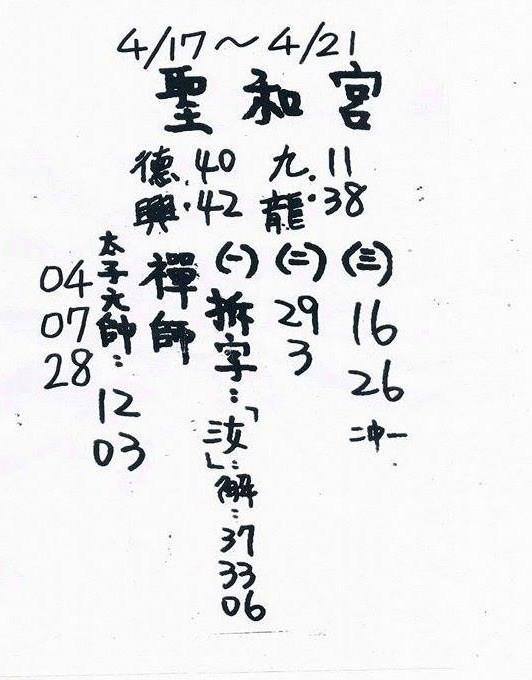 4/17～4/21
聖和宮
德興．40．42
九龍．11．38
(三)
16
26
二沖一
(二)
29
3
(一)
拆字：「汝」：解：
37
33
06
禪師
太子元帥：
12
03
04
07
28